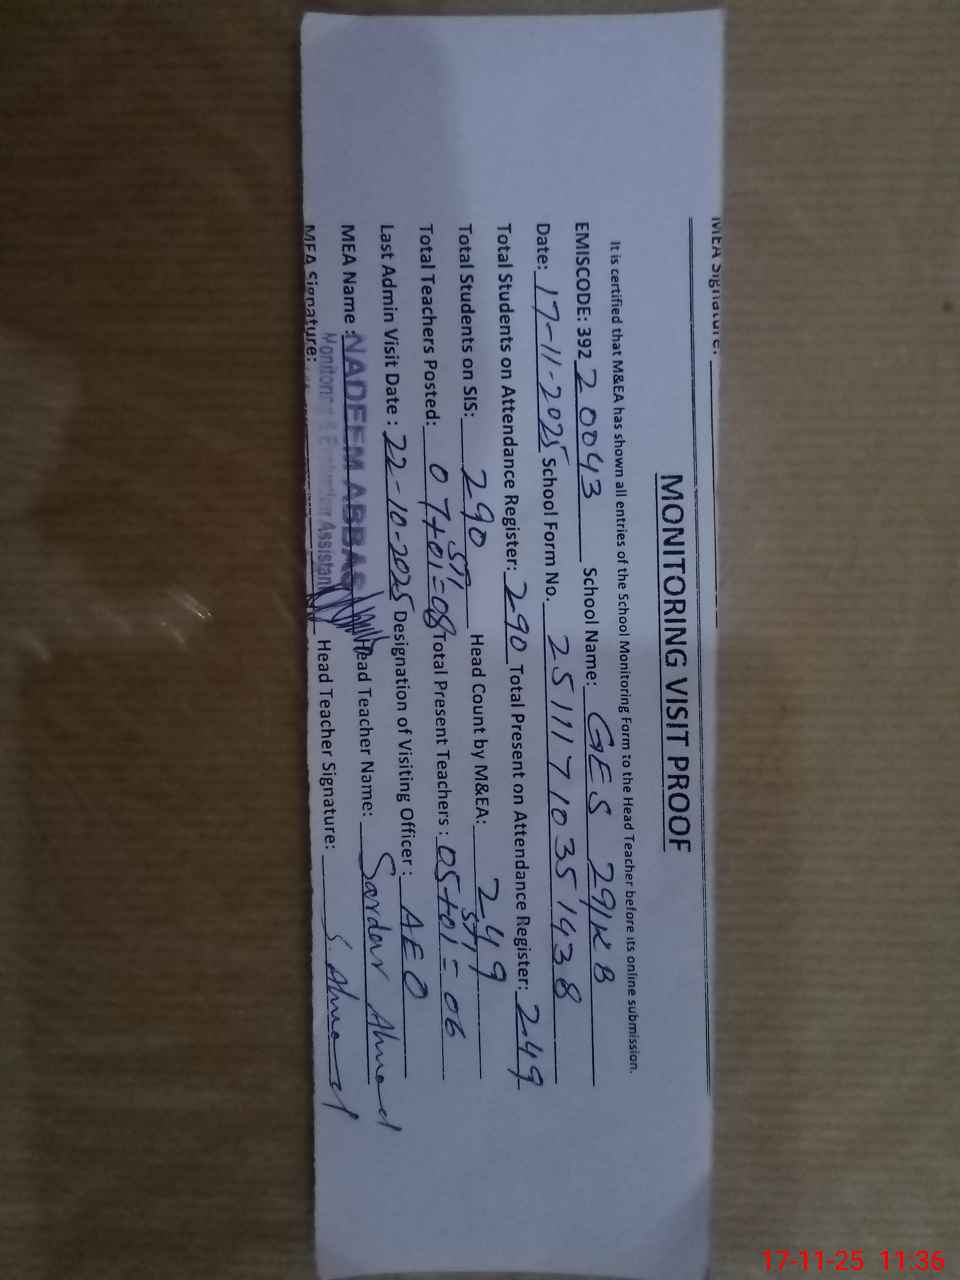 MEA Signature:
MONITORING VISIT PROOF
It is certified that M&EA has shown all entries of the School Monitoring Form to the Head Teacher before its online submission.
EMISCODE: 392 20043 School Name: GES 29/KB
Date: 17-11-2025 School Form No. 251117 1035 1438
Total Students on Attendance Register: 290 Total Present on Attendance Register: 249
Total Students on SIS: 290 Head Count by M&EA: 249
STI STI
Total Teachers Posted: 07+01=08 Total Present Teachers: 05+01=06
Last Admin Visit Date: 22-10-2025 Designation of Visiting Officer: AEO
MEA Name: NADEEM ABBAS Head Teacher Name: Sardar Ahmad
Monitoring & Evaluation Assistant
MEA Signature: Head Teacher Signature: S. Ahmad
17-11-25 11:36